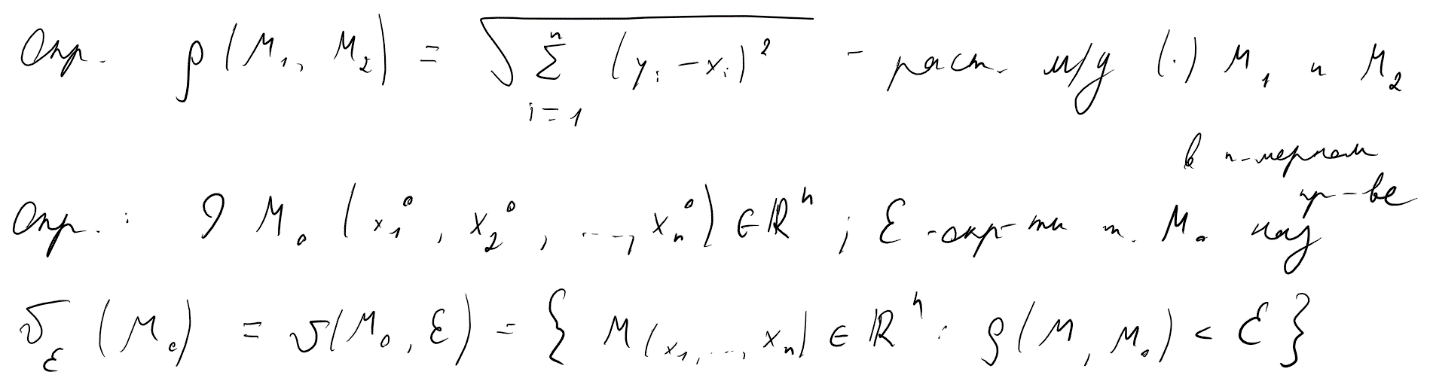 Опр. ρ(M₁, M₂) = √(∑ⁿᵢ₌₁ (yᵢ - xᵢ)²) - расст. м/у (·) M₁ и M₂
в n-мерном
пр-ве
Опр.: ] M₀ (x₁⁰, x₂⁰, ..., xₙ⁰) ∈ ℝⁿ; ε-окр-ти т. M₀ наз
𝒪_ε (M₀) = 𝒪(M₀, ε) = { M(x₁, ..., xₙ) ∈ ℝⁿ: ρ(M, M₀) < ε }